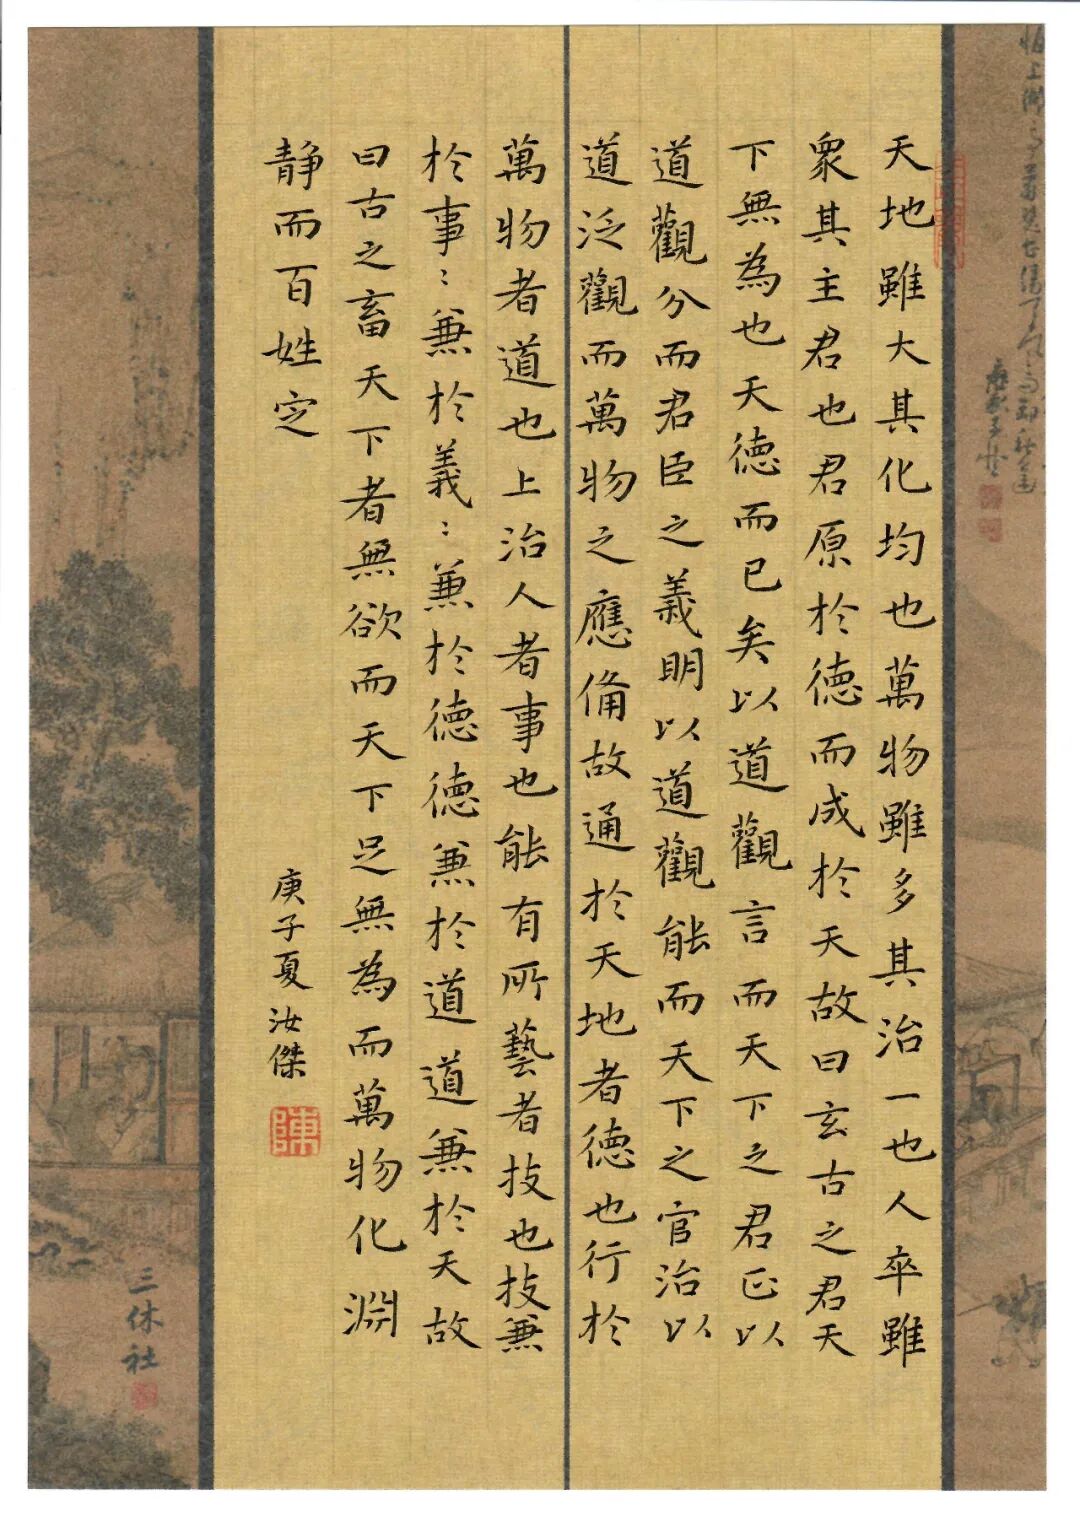 天地雖大其化均也萬物雖多其治一也人卒雖
衆其主君也君原於德而成於天故曰玄古之君天
下無為也天德而已矣以道觀言而天下之君正以
道觀分而君臣之義明以道觀能而天下之官治以
道泛觀而萬物之應備故通於天地者德也行於
萬物者道也上治人者事也能有所藝者技也技兼
於事：兼於義：兼於德德兼於道道兼於天故
曰古之畜天下者無欲而天下足無為而萬物化淵
静而百姓定
庚子夏汝傑
陳
三休社